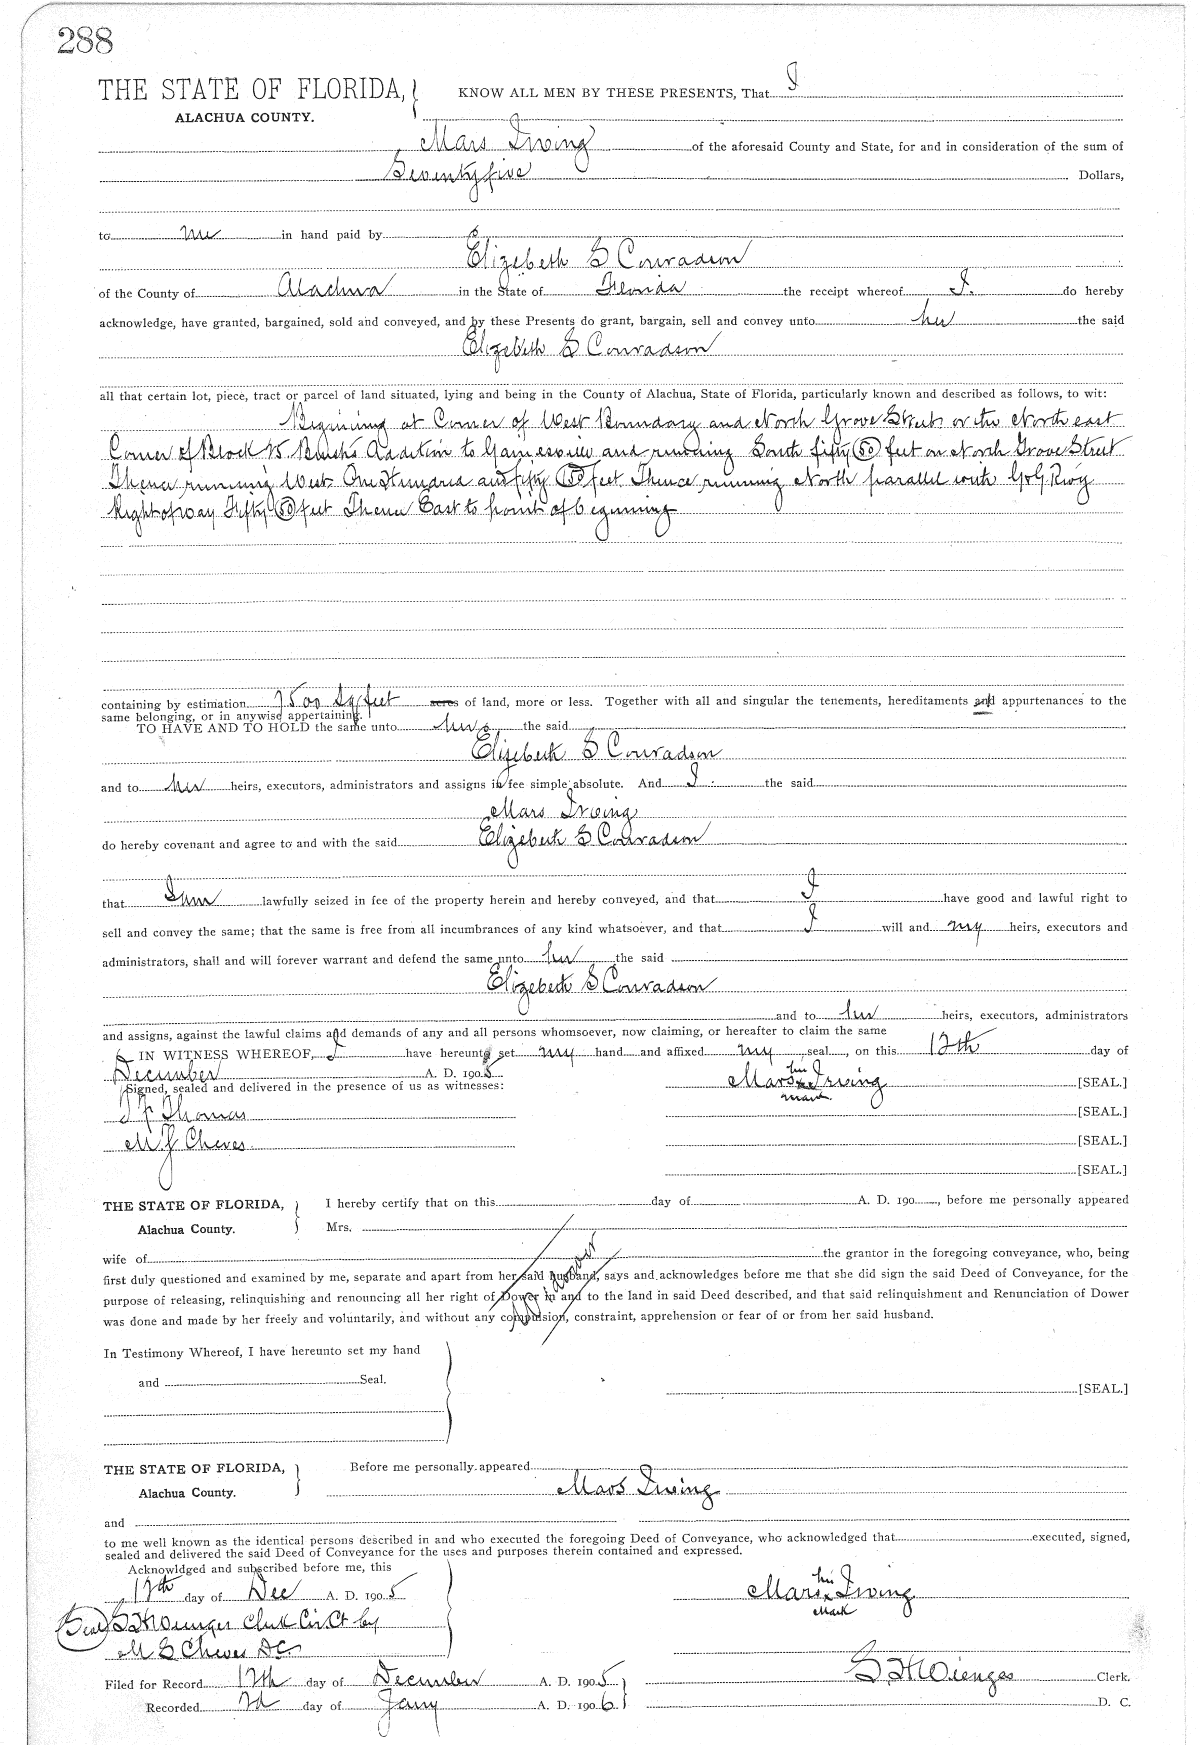 288
THE STATE OF FLORIDA, KNOW ALL MEN BY THESE PRESENTS, That I
ALACHUA COUNTY.
Mars Irving of the aforesaid County and State, for and in consideration of the sum of
Seventyfive Dollars,
to me in hand paid by
Elizebeth S Conradson
of the County of Alachua in the State of Florida the receipt whereof I. do hereby
acknowledge, have granted, bargained, sold and conveyed, and by these Presents do grant, bargain, sell and convey unto her the said
Elizebeth S Conradson
all that certain lot, piece, tract or parcel of land situated, lying and being in the County of Alachua, State of Florida, particularly known and described as follows, to wit:
Beginning at Corner of West Boundary and North Grove Streets or the North east
Corner of Block 25 Brush's Addition to Gainesville and running South fifty (50) feet on North Grove Street
Thence running West One Hundred and fifty (150) feet Thence running North parallel with G&G Rwy
Right of way Fifty (50) feet Thence East to point of beginning
containing by estimation 7500 Sq feet acres of land, more or less. Together with all and singular the tenements, hereditaments and appurtenances to the
same belonging, or in anywise appertaining.
TO HAVE AND TO HOLD the same unto her the said
Elizebeth S Conradson
and to her heirs, executors, administrators and assigns in fee simple absolute. And I the said
Mars Irving
do hereby covenant and agree to and with the said Elizebeth S Conradson
that I am lawfully seized in fee of the property herein and hereby conveyed, and that I have good and lawful right to
sell and convey the same; that the same is free from all incumbrances of any kind whatsoever, and that I will and my heirs, executors and
administrators, shall and will forever warrant and defend the same unto her the said
Elizebeth S Conradson
and to her heirs, executors, administrators
and assigns, against the lawful claims and demands of any and all persons whomsoever, now claiming, or hereafter to claim the same
IN WITNESS WHEREOF, I have hereunto set my hand and affixed my seal, on this 12th day of
December A. D. 1905
Signed, sealed and delivered in the presence of us as witnesses: Mars his x mark Irving [SEAL.]
Thomas [SEAL.]
Cheves [SEAL.]
[SEAL.]
THE STATE OF FLORIDA, I hereby certify that on this day of A. D. 190 , before me personally appeared
Alachua County. Mrs.
wife of the grantor in the foregoing conveyance, who, being
first duly questioned and examined by me, separate and apart from her said husband, says and acknowledges before me that she did sign the said Deed of Conveyance, for the
purpose of releasing, relinquishing and renouncing all her right of Dower in and to the land in said Deed described, and that said relinquishment and Renunciation of Dower
was done and made by her freely and voluntarily, and without any compulsion, constraint, apprehension or fear of or from her said husband.
In Testimony Whereof, I have hereunto set my hand
and Seal.
[SEAL.]
THE STATE OF FLORIDA, Before me personally appeared
Alachua County. Mars Irving
and
to me well known as the identical persons described in and who executed the foregoing Deed of Conveyance, who acknowledged that executed, signed,
sealed and delivered the said Deed of Conveyance for the uses and purposes therein contained and expressed.
Acknowldged and subscribed before me, this
12th day of Dec A. D. 1905 Mars his x Mark Irving
Seal S H Wienges Clerk Cir Ct by
Cheves D C
S H Wienges Clerk.
Filed for Record 12th day of December A. D. 1905
Recorded 2d day of Jany A. D. 1906 D. C.